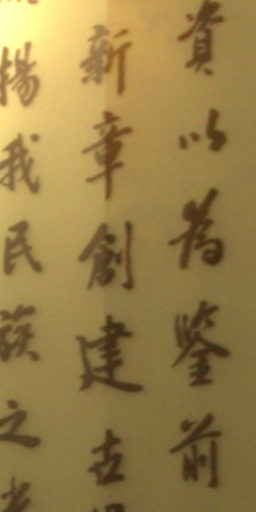 資以為鑒前
新章創建古
揚我民族之